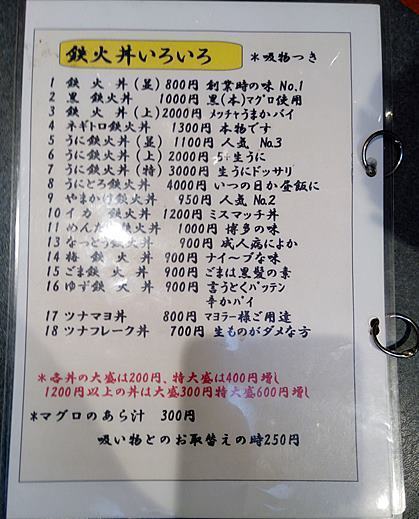 鉄火丼いろいろ ＊吸物つき
1 鉄火丼(並) 800円 創業時の味 No.1
2 黒鉄火丼 1000円 黒(本)マグロ使用
3 鉄火丼(上) 2000円 メッチャうまかバイ
4 ネギトロ鉄火丼 1300円 本物です
5 うに鉄火丼(並) 1100円 人気 No.3
6 うに鉄火丼(上) 2000円 生うに
7 うに鉄火丼(特) 3000円 生うにドッサリ
8 うにとろ鉄火丼 4000円 いつの日か昼飯に
9 やまかけ鉄火丼 950円 人気 No.2
10 イカ鉄火丼 1200円 ミスマッチ丼
11 めんたい鉄火丼 1000円 博多の味
13 なっとう鉄火丼 900円 成人病によか
14 梅鉄火丼 900円 ナイ～ブな味
15 ごま鉄火丼 900円 ごまは黒髪の素
16 ゆず鉄火丼 900円 言うとくバッテン
辛かバイ
17 ツナマヨ丼 800円 マヨラー様ご用達
18 ツナフレーク丼 700円 生ものがダメな方
＊各丼の大盛は200円、特大盛は400円増し
1200円以上の丼は大盛300円特大盛600円増し
＊マグロのあら汁 300円
吸い物とのお取替えの時250円